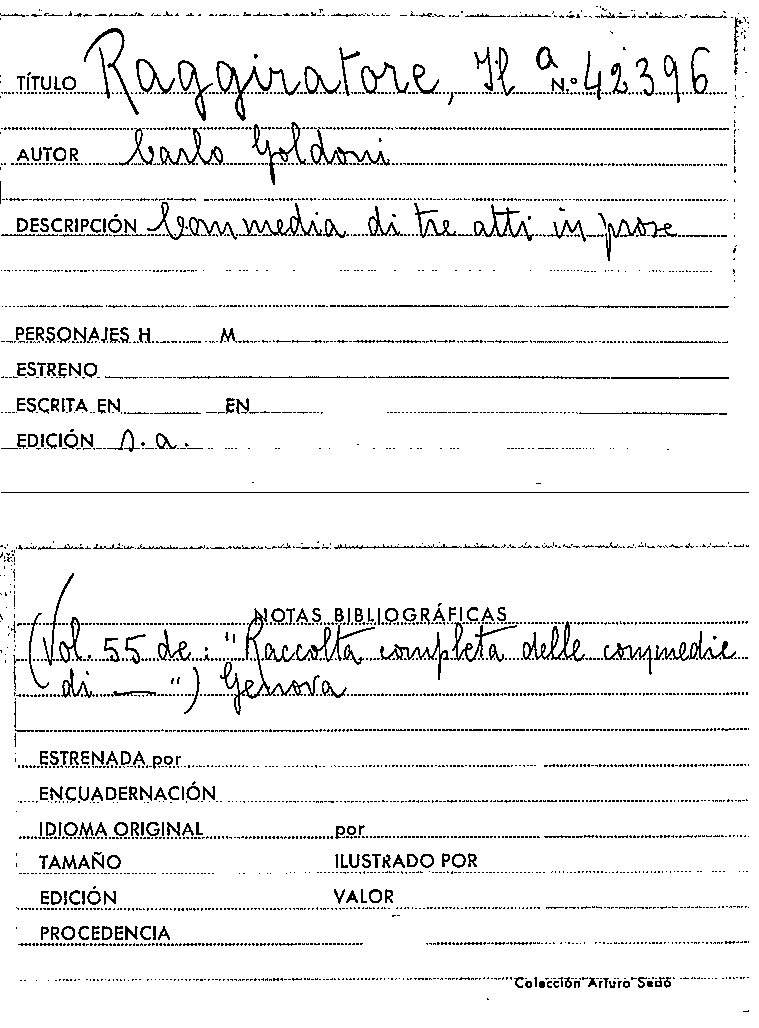 TÍTULO Raggiratore, Il a N.º 42396
AUTOR Carlo Goldoni
DESCRIPCIÓN Commedia di tre atti in prose
PERSONAJES H M
ESTRENO
ESCRITA EN EN
EDICIÓN s.a.
NOTAS BIBLIOGRÁFICAS
(Vol. 55 de: "Raccolta completa delle commedie
di — ") Genova
ESTRENADA por
ENCUADERNACIÓN
IDIOMA ORIGINAL por
TAMAÑO ILUSTRADO POR
EDICIÓN VALOR
PROCEDENCIA
Colección Arturo Sedó